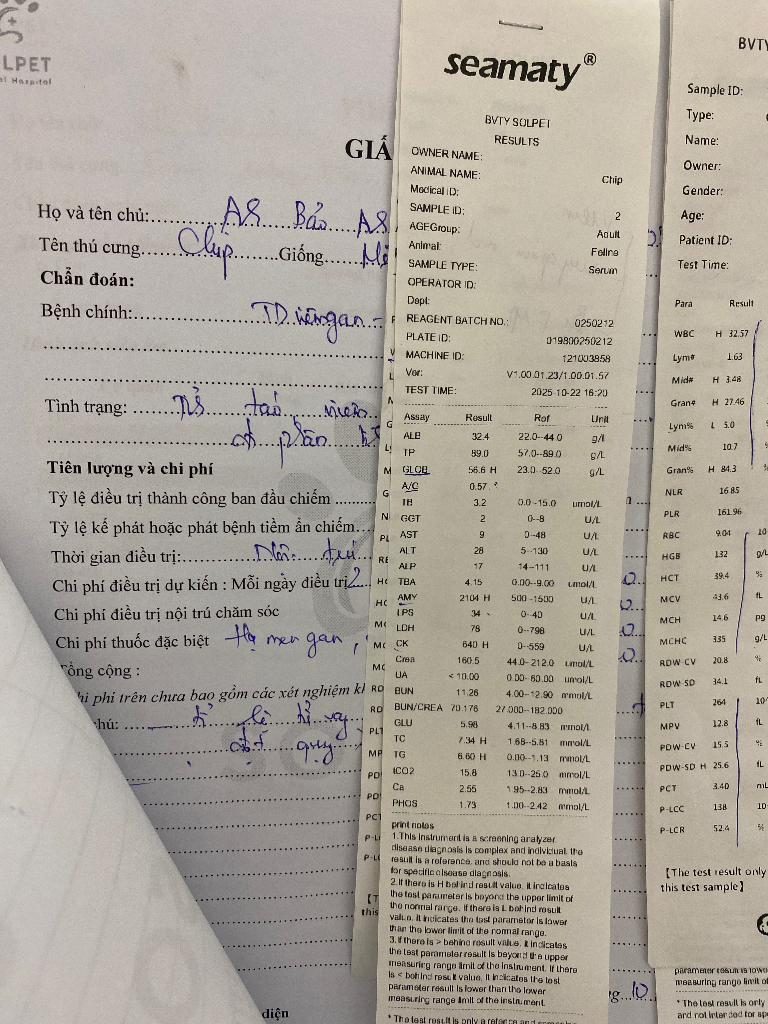 LPET
al Hospital
GIẤ
Họ và tên chủ: A8 Bảo A8
Tên thú cưng Chip Giống
Chẩn đoán:
Bệnh chính: TD viêm gan -
Tình trạng: táo
Tiên lượng và chi phí
Tỷ lệ điều trị thành công ban đầu chiếm
Tỷ lệ kế phát hoặc phát bệnh tiềm ẩn chiếm
Thời gian điều trị: Nội trú
Chi phí điều trị dự kiến : Mỗi ngày điều trị 2
Chi phí điều trị nội trú chăm sóc
Chi phí thuốc đặc biệt Hạ men gan,
Tổng cộng :
hi phí trên chưa bao gồm các xét nghiệm kh
hú:
diện
seamaty®
BVTY SOLPET
RESULTS
OWNER NAME:
ANIMAL NAME: Chip
Medical ID:
SAMPLE ID: 2
AGEGroup: Adult
Animal: Feline
SAMPLE TYPE: Serum
OPERATOR ID:
Dept:
REAGENT BATCH NO.: 0250212
PLATE ID: 019800250212
MACHINE ID: 121003858
Ver: V1.00.01.23/1.00.01.57
TEST TIME: 2025-10-22 16:20
Assay Result Ref Unit
ALB 32.4 22.0--44.0 g/L
TP 89.0 57.0--89.0 g/L
GLOB 56.6 H 23.0--52.0 g/L
A/G 0.57 *
TB 3.2 0.0--15.0 umol/L
GGT 2 0--8 U/L
AST 9 0--48 U/L
ALT 28 5--130 U/L
ALP 17 14--111 U/L
TBA 4.15 0.00--9.00 umol/L
AMY 2104 H 500--1500 U/L
LPS 34 0--40 U/L
LDH 78 0--798 U/L
CK 640 H 0--559 U/L
Crea 160.5 44.0--212.0 umol/L
UA < 10.00 0.00--60.00 umol/L
BUN 11.26 4.00--12.90 mmol/L
BUN/CREA 70.176 27.000--182.000
GLU 5.98 4.11--8.83 mmol/L
TC 7.34 H 1.68--5.81 mmol/L
TG 6.60 H 0.00--1.13 mmol/L
tCO2 15.8 13.0--25.0 mmol/L
Ca 2.55 1.95--2.83 mmol/L
PHOS 1.73 1.00--2.42 mmol/L
print notes
1.This instrument is a screening analyzer.
disease diagnosis is complex and individual. the
result is a reference. and should not be a basis
for specific disease diagnosis.
2.If there is H behind result value. it indicates
the test parameter is beyond the upper limit of
the normal range. if there is L behind result
value. it indicates the test parameter is lower
than the lower limit of the normal range.
3.if there is > behine result value. it indicates
the test parameter result is beyond the upper
measuring range limit of the instrument. If there
is < behind result value. it indicates the test
parameter result is lower than the lower
measuring range limit of the instrument.
* The test result is only a reference and
BVTY
Sample ID:
Type:
Name:
Owner:
Gender:
Age:
Patient ID:
Test Time:
Para Result
WBC H 32.57
Lym# 1.63
Mid# H 3.48
Gran# H 27.46
Lym% L 5.0
Mid% 10.7 %
Gran% H 84.3 %
NLR 16.85
PLR 161.96
RBC 9.04 10
HGB 132 g/L
HCT 39.4 %
MCV 43.6 fL
MCH 14.6 pg
MCHC 335 g/L
RDW-CV 20.8 %
RDW-SD 34.1 fL
PLT 264 10
MPV 12.8 fL
PDW-CV 15.5 %
PDW-SD H 25.6 fL
PCT 3.40 mL
P-LCC 138 10
P-LCR 52.4 %
【The test result only
this test sample】
parameter result is lowe
measuring range limit of
* The test result is only
and not intended for sp